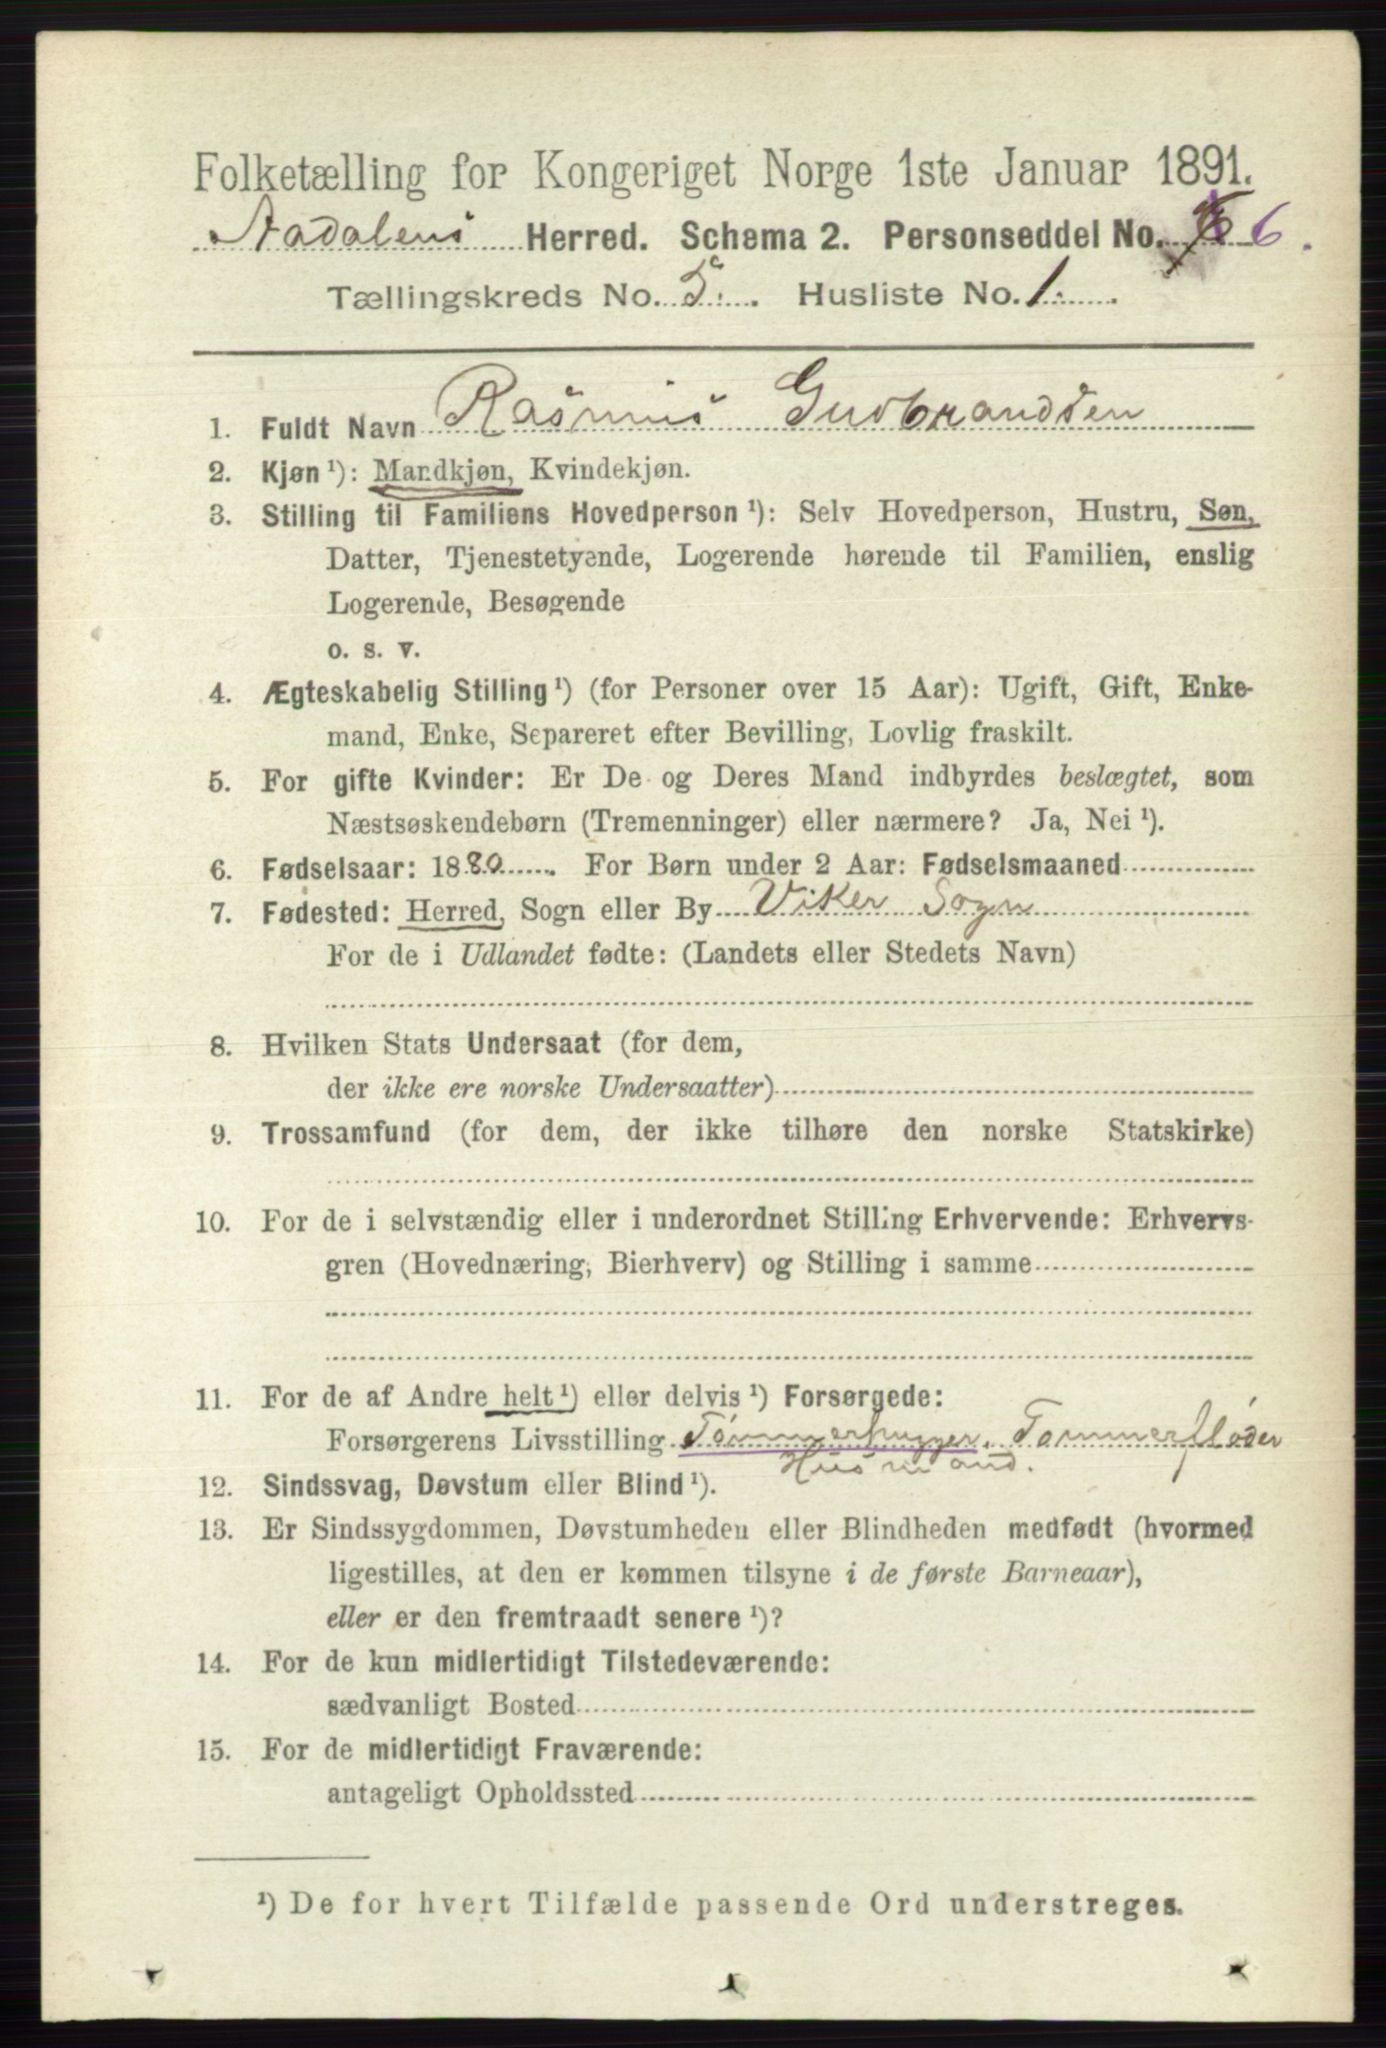 Folketælling for Kongeriget Norge 1ste Januar 1891.
Aadalens Herred. Schema 2. Personseddel No. 6.
Tællingskreds No. 5. Husliste No. 1.
1. Fuldt Navn Rasmus Gudbrandsen
2. Kjøn ¹): Mandkjøn, Kvindekjøn.
3. Stilling til Familiens Hovedperson ¹): Selv Hovedperson, Hustru, Søn,
Datter, Tjenestetyende, Logerende hørende til Familien, enslig
Logerende, Besøgende
o. s. v.
4. Ægteskabelig Stilling ¹) (for Personer over 15 Aar): Ugift, Gift, Enke-
mand, Enke, Separeret efter Bevilling, Lovlig fraskilt.
5. For gifte Kvinder: Er De og Deres Mand indbyrdes beslægtet, som
Næstsøskendebørn (Tremenninger) eller nærmere? Ja, Nei ¹).
6. Fødselsaar: 1880. For Børn under 2 Aar: Fødselsmaaned
7. Fødested: Herred, Sogn eller By Viker Sogn
For de i Udlandet fødte: (Landets eller Stedets Navn)
8. Hvilken Stats Undersaat (for dem,
der ikke ere norske Undersaatter)
9. Trossamfund (for dem, der ikke tilhøre den norske Statskirke)
10. For de i selvstændig eller i underordnet Stilling Erhvervende: Erhvervs-
gren (Hovednæring, Bierhverv) og Stilling i samme
11. For de af Andre helt ¹) eller delvis ¹) Forsørgede:
Forsørgerens Livsstilling Tømmerhugger, Tømmerfløder
Husmand.
12. Sindssvag, Døvstum eller Blind ¹).
13. Er Sindssygdommen, Døvstumheden eller Blindheden medfødt (hvormed
ligestilles, at den er kommen tilsyne i de første Barneaar),
eller er den fremtraadt senere ¹)?
14. For de kun midlertidigt Tilstedeværende:
sædvanligt Bosted
15. For de midlertidigt Fraværende:
antageligt Opholdssted
¹) De for hvert Tilfælde passende Ord understreges.